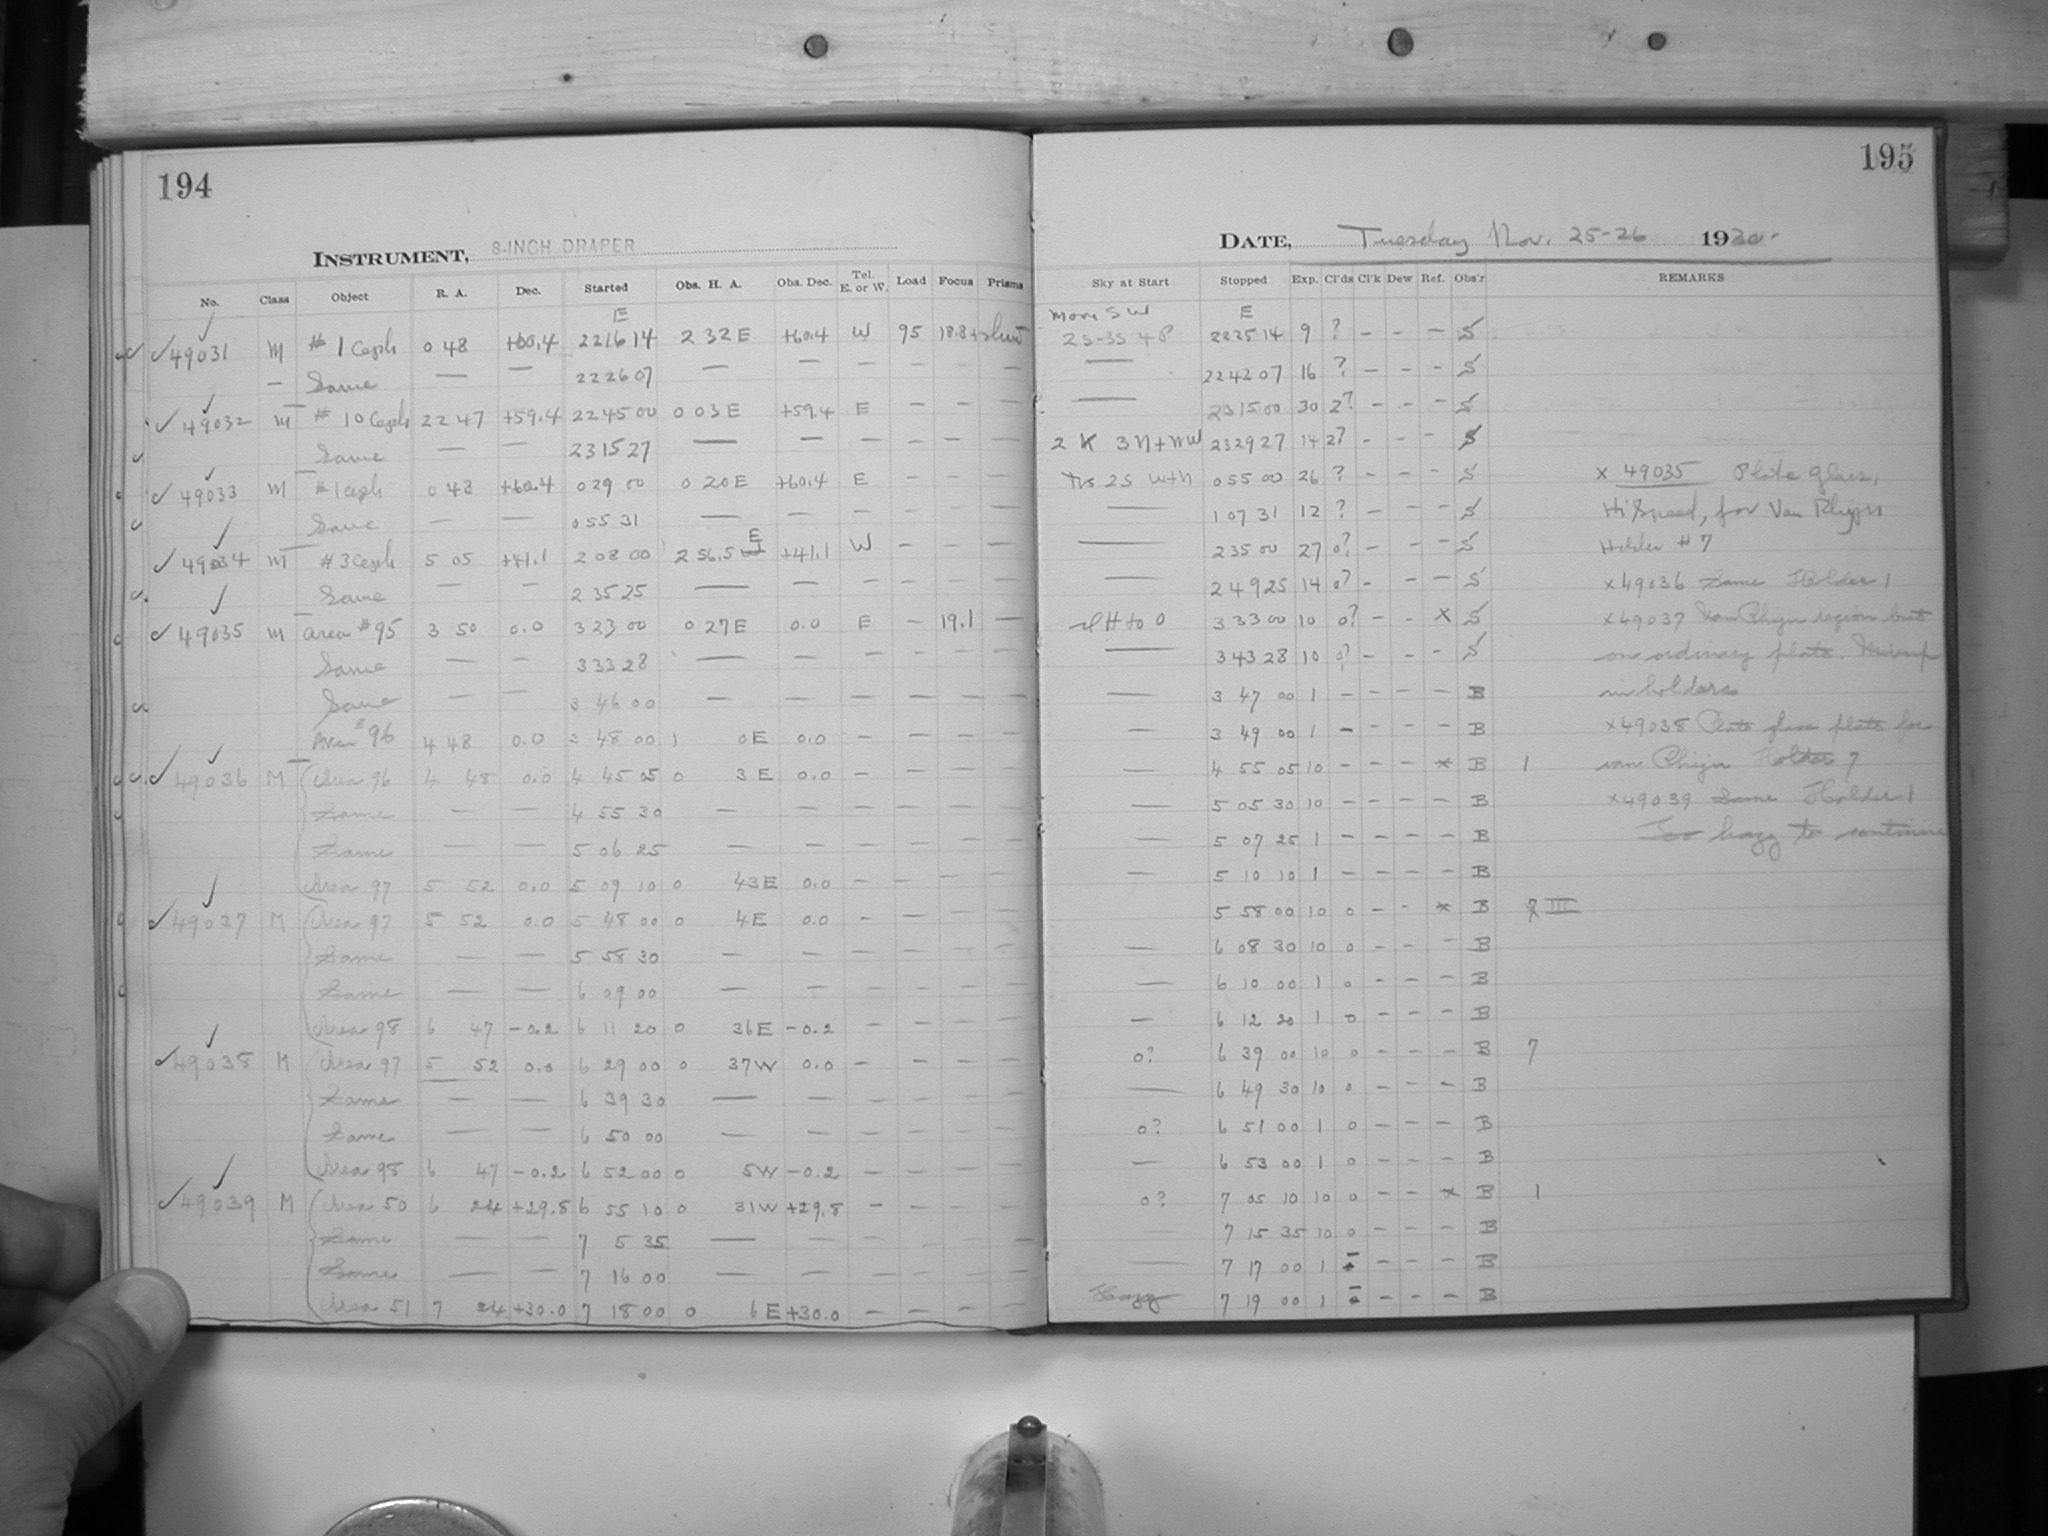 194
INSTRUMENT, 8-INCH DRAPER
No. Class Object R. A. Dec. Started Obs. H. A. Obs. Dec. Tel. E. or W. Load Focus Prisms
E
✓49031 M #1 Ceph 0 48 +60.4 22 16 14 2 32 E +60.4 W 95 18.8
— Same — — 22 26 07 — — — — — —
✓49032 M #10 Ceph 22 47 +59.4 22 45 00 0 03 E +59.4 E — — —
Same — — 23 15 27 — — — — — —
✓49033 M #1 Ceph 0 48 +60.4 0 29 00 0 20 E +60.4 E — — —
Same — — 0 55 31 — — — — — —
✓49034 M #3 Ceph 5 05 +41.1 2 08 00 2 56.5 E +41.1 W — — —
Same — — 2 35 25 — — — — — —
✓49035 M Area #95 3 50 0.0 3 23 00 0 27 E 0.0 E — 19.1 —
Same — — 3 33 28 — — — — — —
Same — — 3 46 00 — — — — — —
Area #96 4 48 0.0 3 48 00 1 0 E 0.0 — — — —
✓49036 M Area 96 4 48 0.0 4 45 05 0 3 E 0.0 — — — —
Same — — 4 55 30 — — — — — —
Same — — 5 06 25 — — — — — —
Area 97 5 52 0.0 5 09 10 0 43 E 0.0 — — — —
✓49037 M Area 97 5 52 0.0 5 48 00 0 4 E 0.0 — — — —
Same — — 5 58 30 — — — — — —
Same — — 6 09 00 — — — — — —
Area 98 6 47 -0.2 6 11 20 0 36 E -0.2 — — — —
✓49038 M Area 97 5 52 0.0 6 29 00 0 37 W 0.0 — — — —
Same — — 6 39 30 — — — — — —
Same — — 6 50 00 — — — — — —
Area 98 6 47 -0.2 6 52 00 0 5 W -0.2 — — — —
✓49039 M Area 50 6 24 +29.8 6 55 10 0 31 W +29.8 — — — —
Same — — 7 5 35 — — — — — —
Same — — 7 16 00 — — — — — —
Area 51 7 24 +30.0 7 18 00 0 6 E +30.0 — — — —
195
DATE, Tuesday Nov. 25-26 1930.
Sky at Start Stopped Exp. Cl'ds Cl'k Dew Ref. Obs'r REMARKS
E
22 25 14 9 ? — — — S
— 22 42 07 16 ? — — — S
— 23 15 00 30 2? — — — S
2 K 3 N+NW 23 29 27 14 2? — — — S
2S W+N 0 55 00 26 ? — — — S × 49035 Plate glass,
— 1 07 31 12 ? — — — S Hi Speed, for Van Rhijn
— 2 35 00 27 0? — — — S Holder #7
— 2 49 25 14 0? — — — S ×49036 Same Holder 1
H to 0 3 33 00 10 0? — — × S ×49037 Van Rhijn region but
— 3 43 28 10 0? — — — S on ordinary plate.
— 3 47 00 1 — — — — B in holders
3 49 00 1 — — — — B ×49038 Plate glass plate for
— 4 55 05 10 — — — × B 1 van Rhijn Holder 7
— 5 05 30 10 — — — — B ×49039 Same Holder 1
— 5 07 25 1 — — — — B Too hazy to continue
— 5 10 10 1 — — — — B
5 58 00 10 0 — — × B III
— 6 08 30 10 0 — — — B
— 6 10 00 1 0 — — — B
— 6 12 20 1 0 — — — B
0? 6 39 00 10 0 — — — B 7
— 6 49 30 10 0 — — — B
0? 6 51 00 1 0 — — — B
— 6 53 00 1 0 — — — B
0? 7 05 10 10 0 — — × B 1
— 7 15 35 10 0 — — — B
— 7 17 00 1 — — — — B
Hazy 7 19 00 1 — — — — B